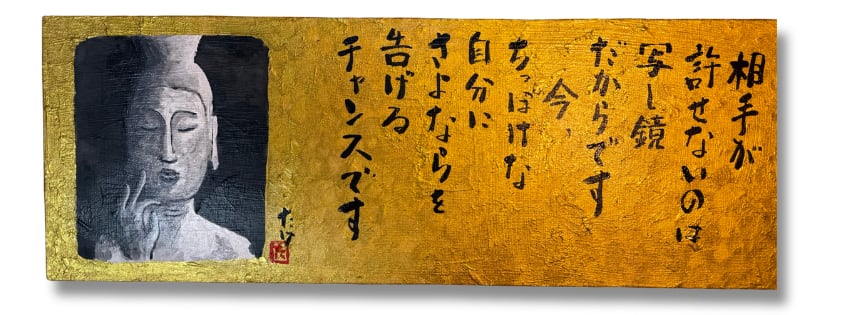 相手が
許せないのは
写し鏡
だからです
今、
ちっぽけな
自分に
さよならを
告げる
チャンスです
たけ